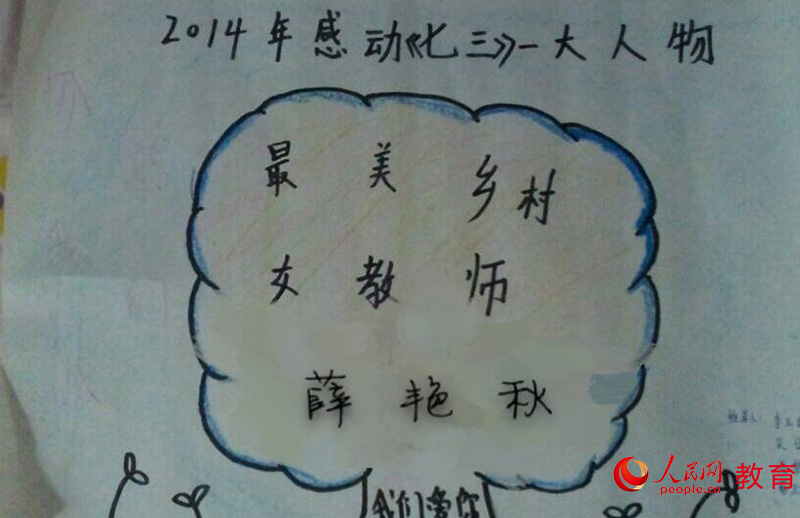 2014年感动《七三》一大人物
最美乡村
女教师
薛艳秋
我们爱你
人民网 教育
people.cn